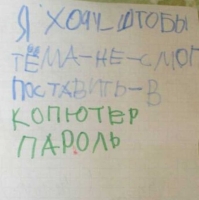 Я ХОЧУ ЧТОБЫ
ТЁМА-НЕ-СМОГ
ПОСТАВИТЬ-В
КОПЮТЕР
ПАРОЛЬ